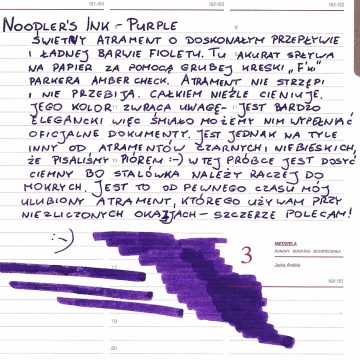 181-184
182-183
NOODLER'S INK - PURPLE
ŚWIETNY ATRAMENT O DOSKONAŁYM PRZEPŁYWIE
I ŁADNEJ BARWIE FIOLETU. TU AKURAT SPŁYWA
NA PAPIER ZA POMOCĄ GRUBEJ KRESKI „F'KI"
PARKERA AMBER CHECK. ATRAMENT NIE STRZĘPI
I NIE PRZEBIJA. CAŁKIEM NIEŹLE CIENIUJE.
JEGO KOLOR ZWRACA UWAGĘ - JEST BARDZO
ELEGANCKI WIĘC ŚMIAŁO MOŻEMY NIM WYPEŁNIAĆ
OFICJALNE DOKUMENTY. JEST JEDNAK NA TYLE
INNY OD ATRAMENTÓW CZARNYCH I NIEBIESKICH,
ŻE PISALIŚMY PIÓREM :-) W TEJ PRÓBCE JEST DOŚĆ
CIEMNY BO STALÓWKA NALEŻY RACZEJ DO
MOKRYCH. JEST TO OD PEWNEGO CZASU MÓJ
ULUBIONY ATRAMENT, KTÓREGO UŻYWAM PRZY
NIEZLICZONYCH OKAZJACH - SZCZERZE POLECAM!
:-)
3
NIEDZIELA
SUNDAY SONNTAG ВОСКРЕСЕНЬЕ
Jacka, Anatola
184-181
19
20